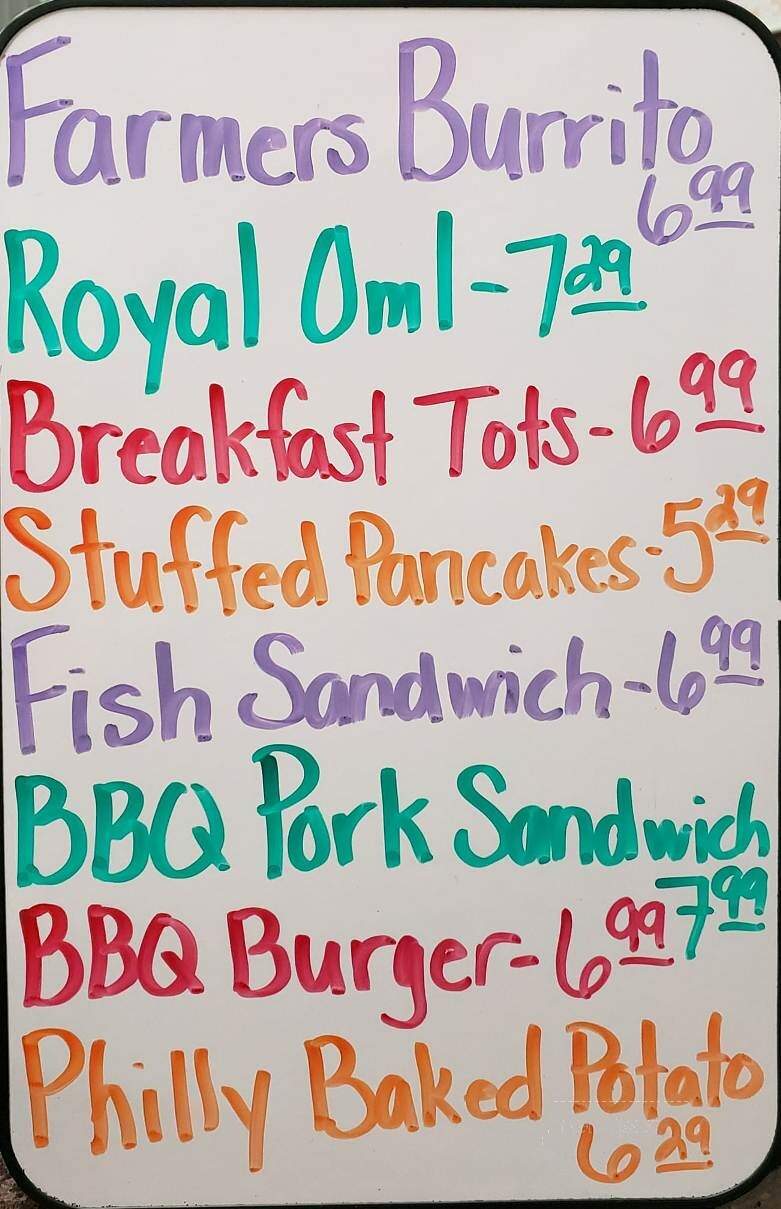 Farmers Burrito
6 99
Royal Oml-7 29
Breakfast Tots-6 99
Stuffed Pancakes-5 29
Fish Sandwich-6 99
BBQ Pork Sandwich
7 99
BBQ Burger-6 99
Philly Baked Potato
6 29